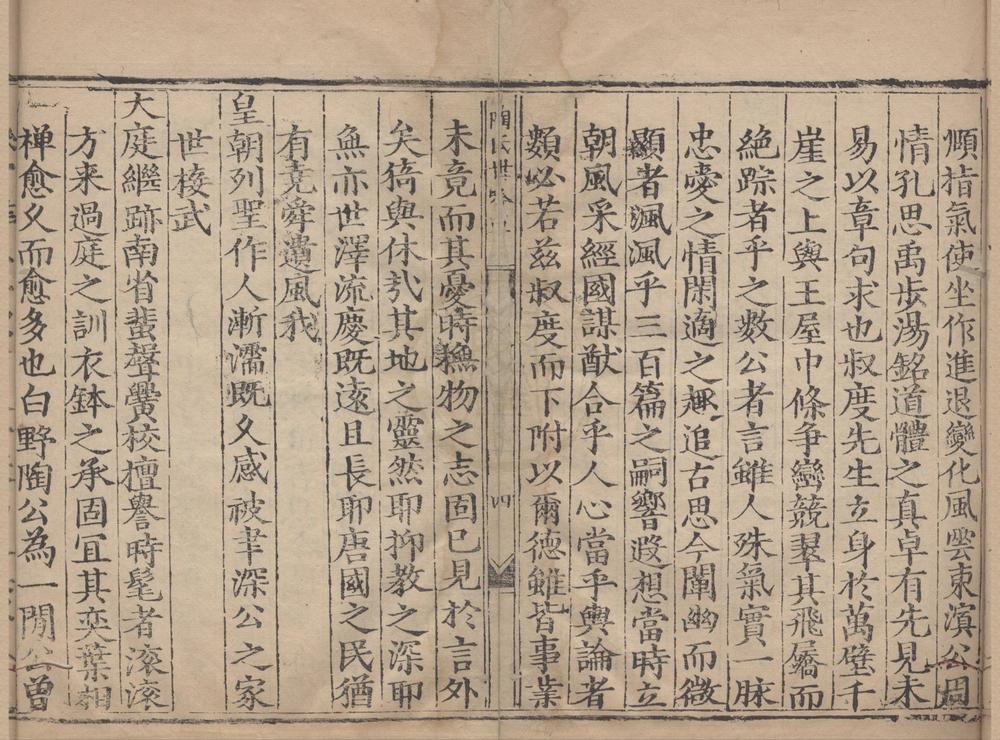 順指氣使坐作進退變化風雲東濵公周
情孔思禹步湯銘道體之真卓有先見未
易以章句求也叔度先生立身於萬壁千
崖之上與王屋巾條争巒競翠其飛屩而
絶踪者乎之數公者言雖人殊氣實一脉
忠愛之情閑適之趣追古思今闡幽而微
顯者渢渢乎三百篇之嗣響遐想當時立
朝風采經國謀猷合乎人心當乎輿論者
類必若茲叔度而下附以爾德雖皆事業
陶氏世 四
未竟而其憂時撫物之志固已見於言外
矣猗與休㢤其地之靈然耶抑教之深耶
無亦世澤流慶既遠且長耶唐國之民猶
有堯舜遺風我
皇朝列聖作人漸濡既久感被聿深公之家
世棱武
大庭繼跡南省蜚聲黌校擅譽時髦者滚滚
方来過庭之訓衣鉢之承固宜其奕葉相
禅愈久而愈多也白野陶公為一閒公曾